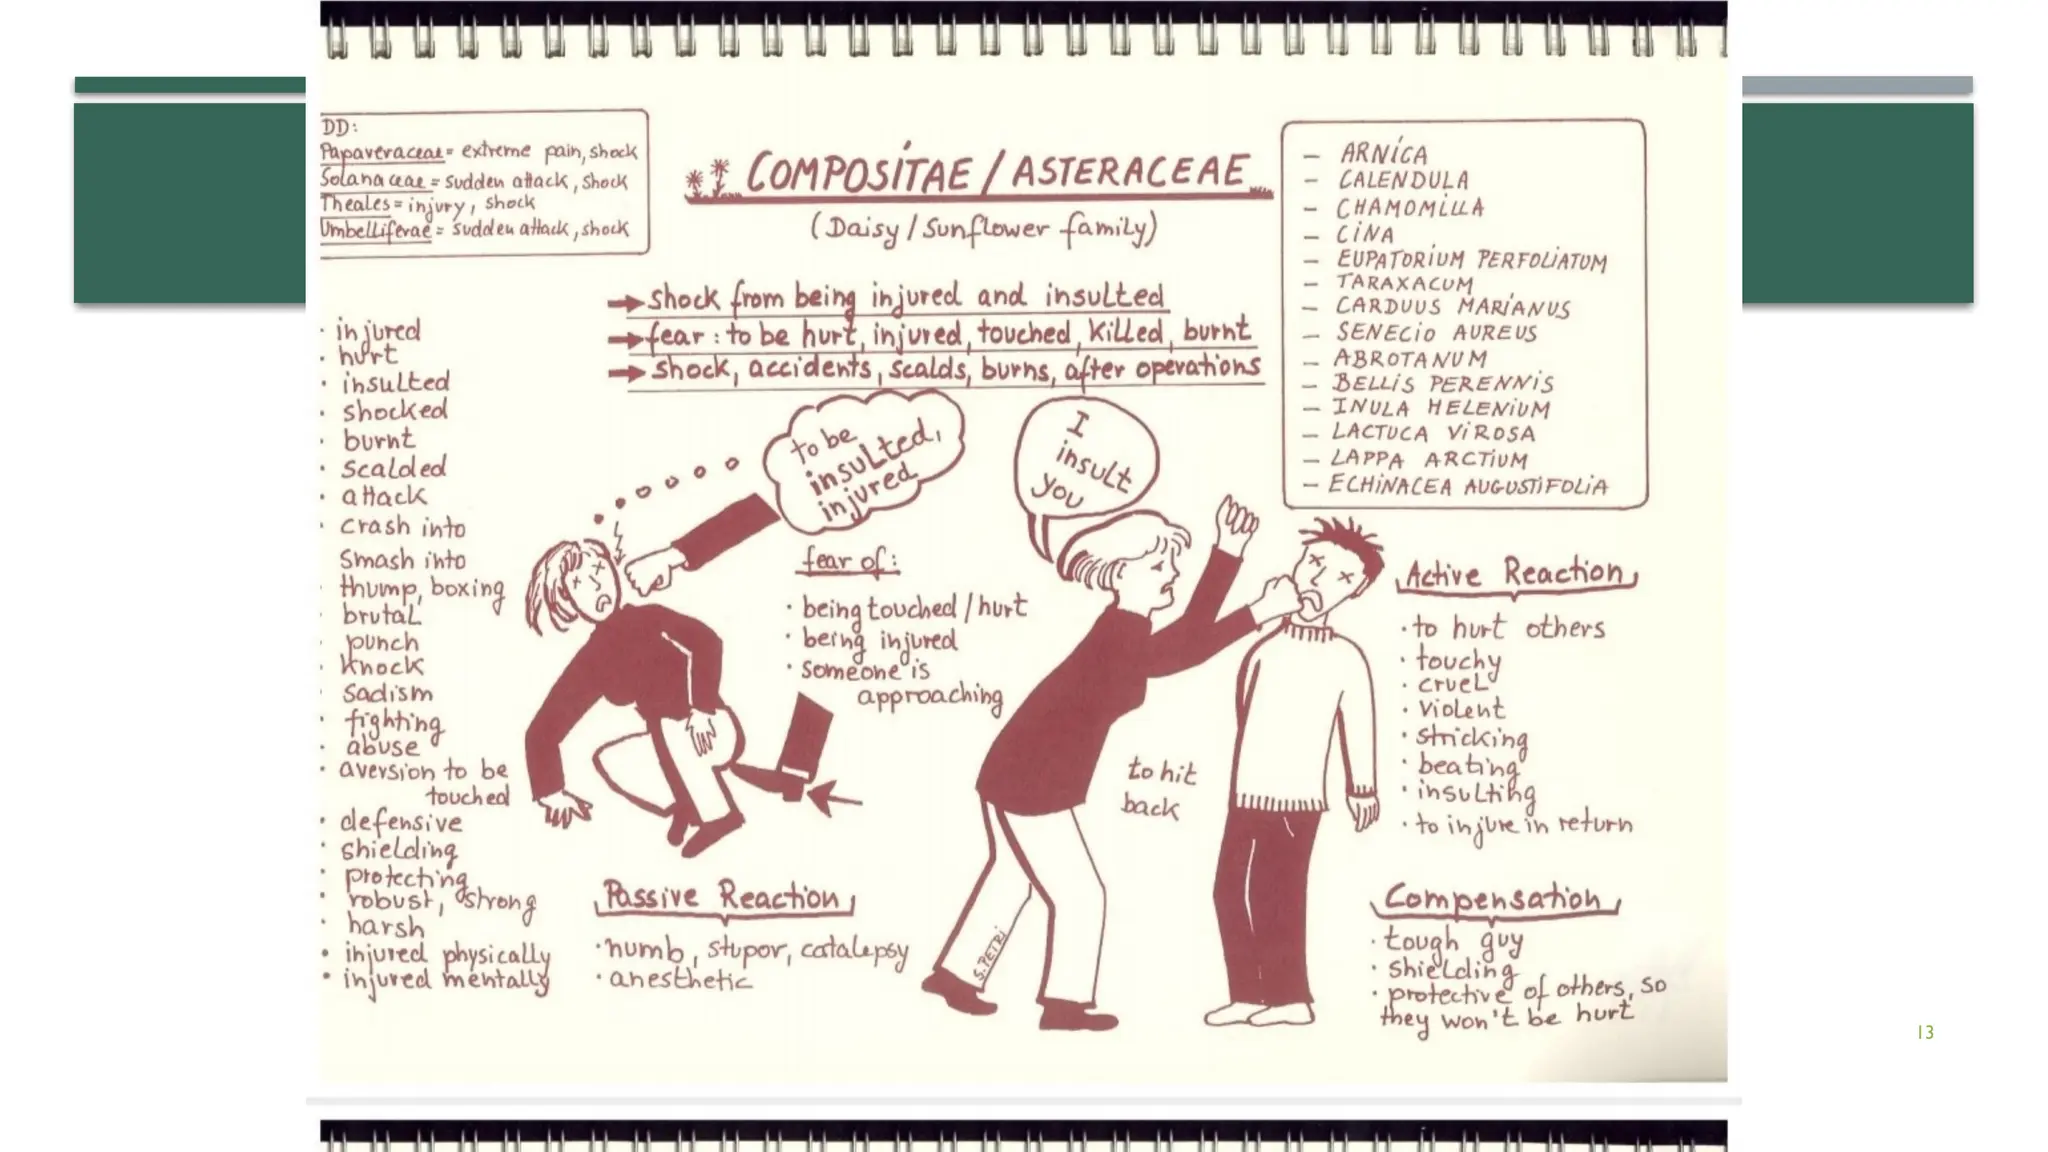 DD:
Papaveraceae = extreme pain, shock
Solanaceae = sudden attack, shock
Theales = injury, shock
Umbelliferae = sudden attack, shock
COMPOSITAE / ASTERACEAE
(Daisy / Sunflower family)
→ shock from being injured and insulted
→ fear : to be hurt, injured, touched, killed, burnt
→ shock, accidents, scalds, burns, after operations
- ARNICA
- CALENDULA
- CHAMOMILLA
- CINA
- EUPATORIUM PERFOLIATUM
- TARAXACUM
- CARDUUS MARIANUS
- SENECIO AUREUS
- ABROTANUM
- BELLIS PERENNIS
- INULA HELENIUM
- LACTUCA VIROSA
- LAPPA ARCTIUM
- ECHINACEA AUGUSTIFOLIA
· injured
· hurt
· insulted
· shocked
· burnt
· scalded
· attack
· crash into
smash into
· thump, boxing
· brutal
· punch
· knock
· sadism
· fighting
· abuse
· aversion to be
touched
· defensive
· shielding
· protecting
· robust, strong
· harsh
· injured physically
· injured mentally
to be
insulted,
injured
fear of:
· being touched / hurt
· being injured
· someone is
approaching
Passive Reaction
· numb, stupor, catalepsy
· anesthetic
I
insult
you
to hit
back
S. PETRI
Active Reaction
· to hurt others
· touchy
· cruel
· violent
· stricking
· beating
· insulting
· to injure in return
Compensation
· tough guy
· shielding
· protective of others, so
they won't be hurt
13